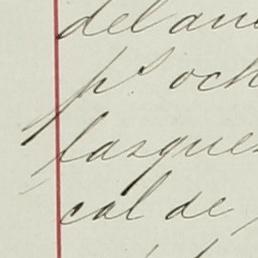 del an
ps och
lasque
cal de